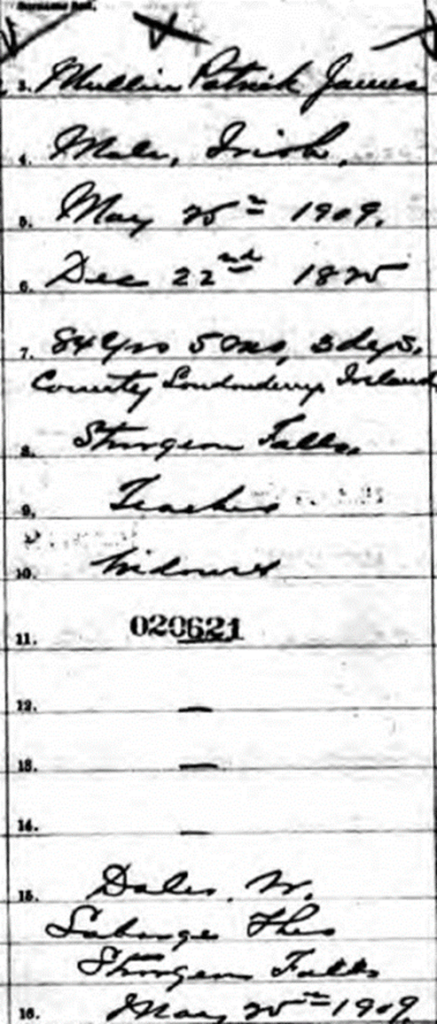 3. Mullin Patrick James
4. Male, Irish,
5. May 25th 1909.
6. Dec 22nd 1825
7. 84 yrs 5 ms, 3 dys.
County Londonderry Ireland
8. Sturgeon Falls,
9. Teacher
10. Widower
020621
11.
12. —
13. —
14. —
15. Dales, W.
Thos
Sturgeon Falls
16. May 25th 1909